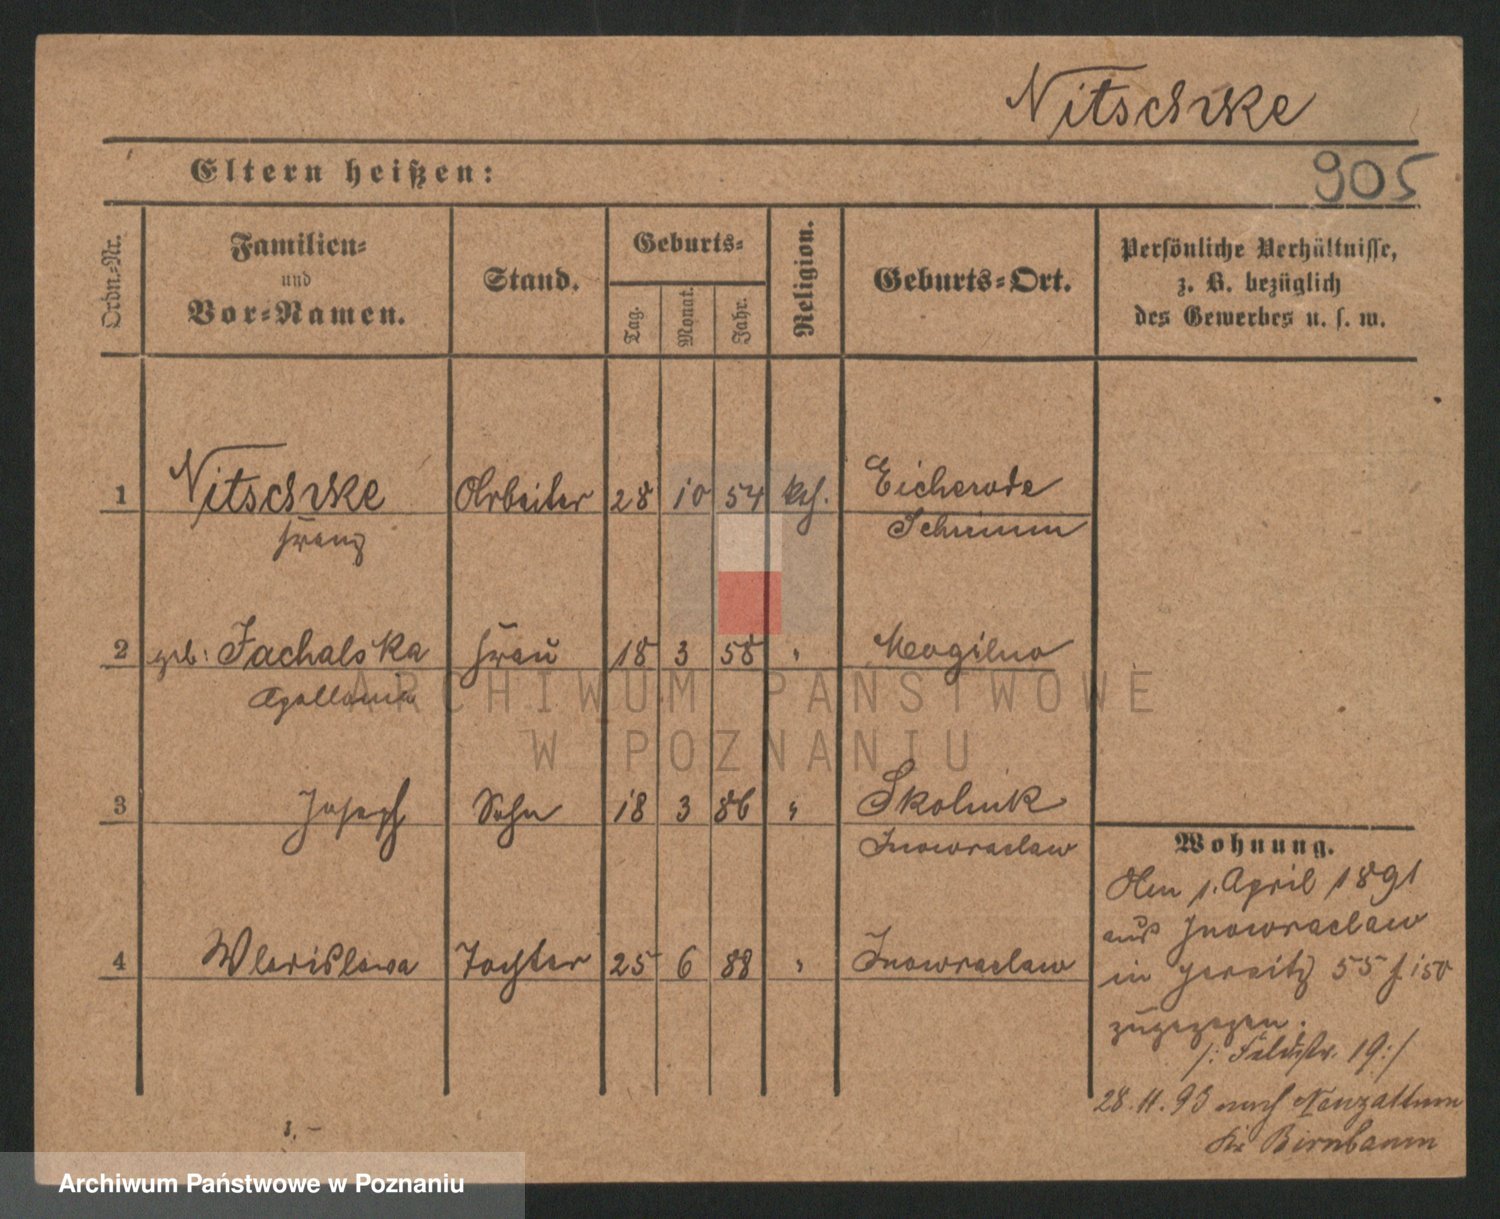 Nitschke
905
Eltern heißen:
Ordn.=Nr.
Familien=
und
Vor=Namen.
Stand.
Geburts=
Tag.
Monat.
Jahr.
Religion.
Geburts=Ort.
Persönliche Verhältnisse,
z. B. bezüglich
des Gewerbes u. s. w.
1 Nitschke Arbeiter 28 10 54 kth. Eicherode
Franz Schrimm
2 geb: Jachalska Frau 18 3 58 " Mogilno
Apollonia
3 Joseph Sohn 18 3 86 " Skolnik
Inowraclaw
4 Wladislawa Tochter 25 6 88 " Inowraclaw
Wohnung.
Am 1. April 1891
aus Inowraclaw
in Jersitz 55 f 150
zugezogen.
/: Feldstr. 19:/
28.11.93 nach Neuzattum
Kr. Birnbaum
3,-
ARCHIWUM PAŃSTWOWE
W POZNANIU
Archiwum Państwowe w Poznaniu